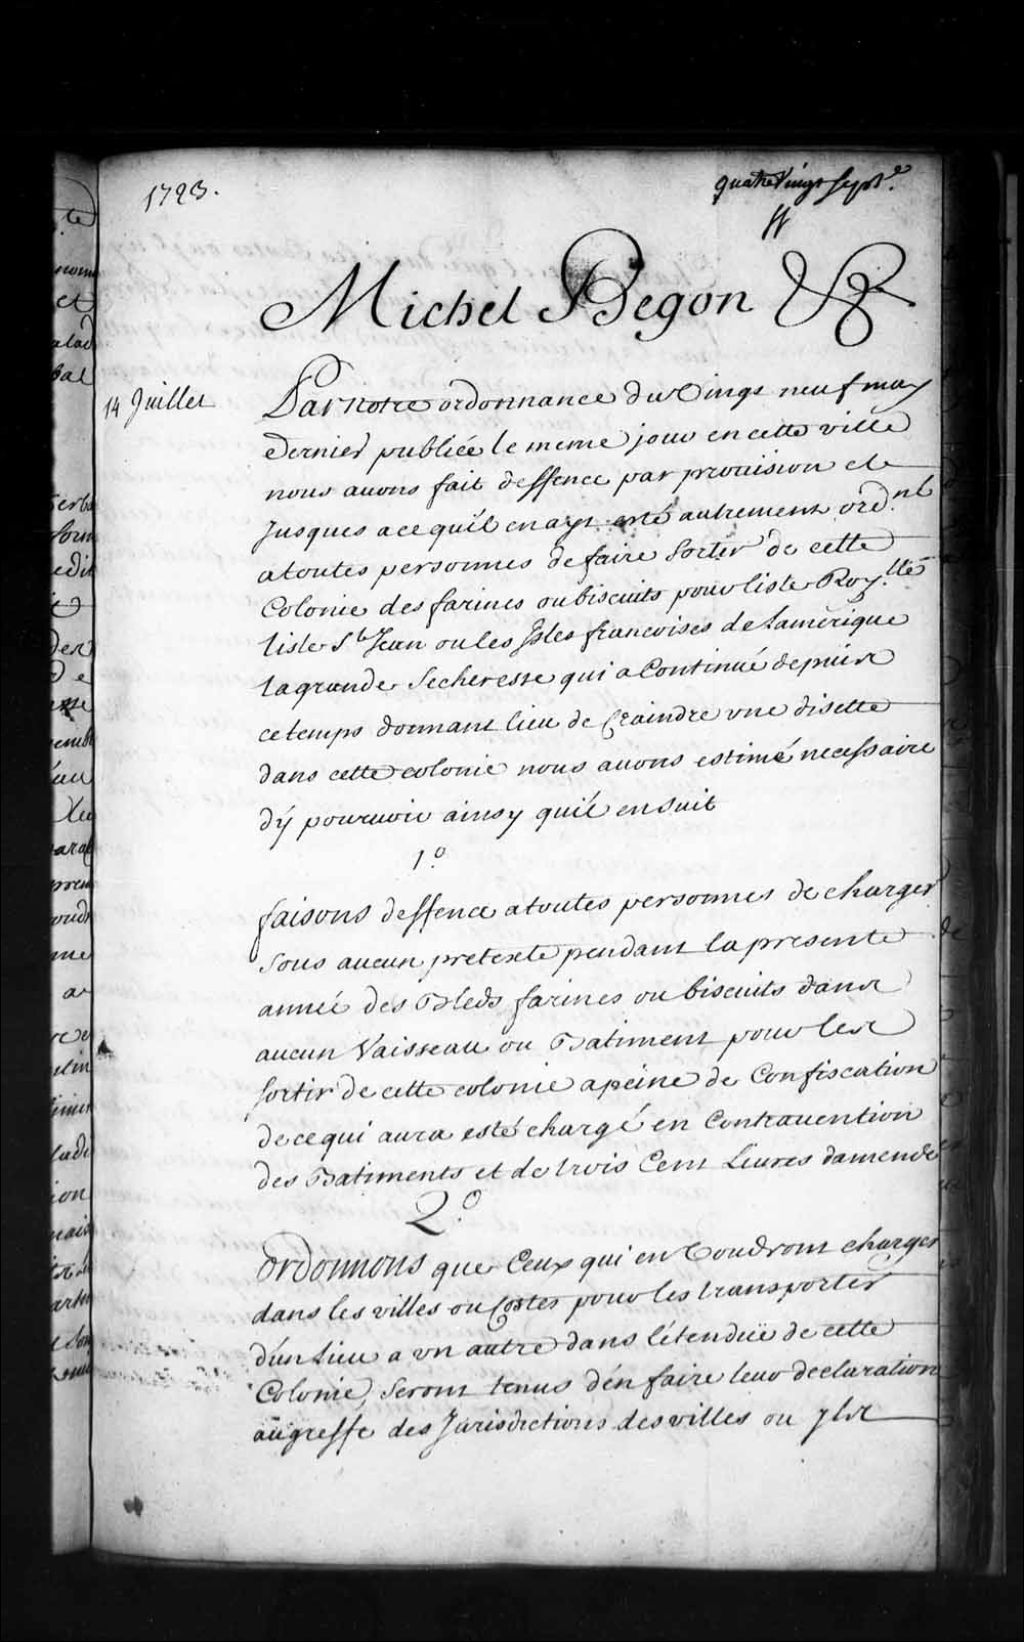 1723.
quatreVingt sept.e
Michel Begon &
14 Juillet
Par notre ordonnance du Vingt neuf may
dernier publiée le meme jour en cette ville
nous auons fait deffence par prouision et
Jusques a ce quil en ayt esté autrement ord.né
a toutes personnes de faire Sortir de cette
Colonie des farines ou biscuits pour lisle Roy.lle
lisle St Jean ou les Isles francoises de Lamerique
la grande Secheresse qui a Continué depuis
ce temps donnant lieu de Craindre vne disette
dans cette colonie nous auons estimé necessaire
dÿ pouruoir ainsy quil en Suit
1.o
faisons deffence a toutes personnes de charger
Sous aucun pretexte pendant la presente
année des Bleds farines ou biscuits dans
aucun Vaisseau ou Batiment pour les
Sortir de cette colonie a peine de Confiscation
de ce qui aura esté chargé en Contrauention
des Batiments et de trois Cent Liures damende
2.o
Ordonnons que Ceux qui en Voudront charger
dans les villes ou Costes pour les transporter
d'un Lieu a vn autre dans l'étendüe de cette
Colonie, Seront tenus d'en faire leur declaration
au greffe des Jurisdictions des villes ou Ils